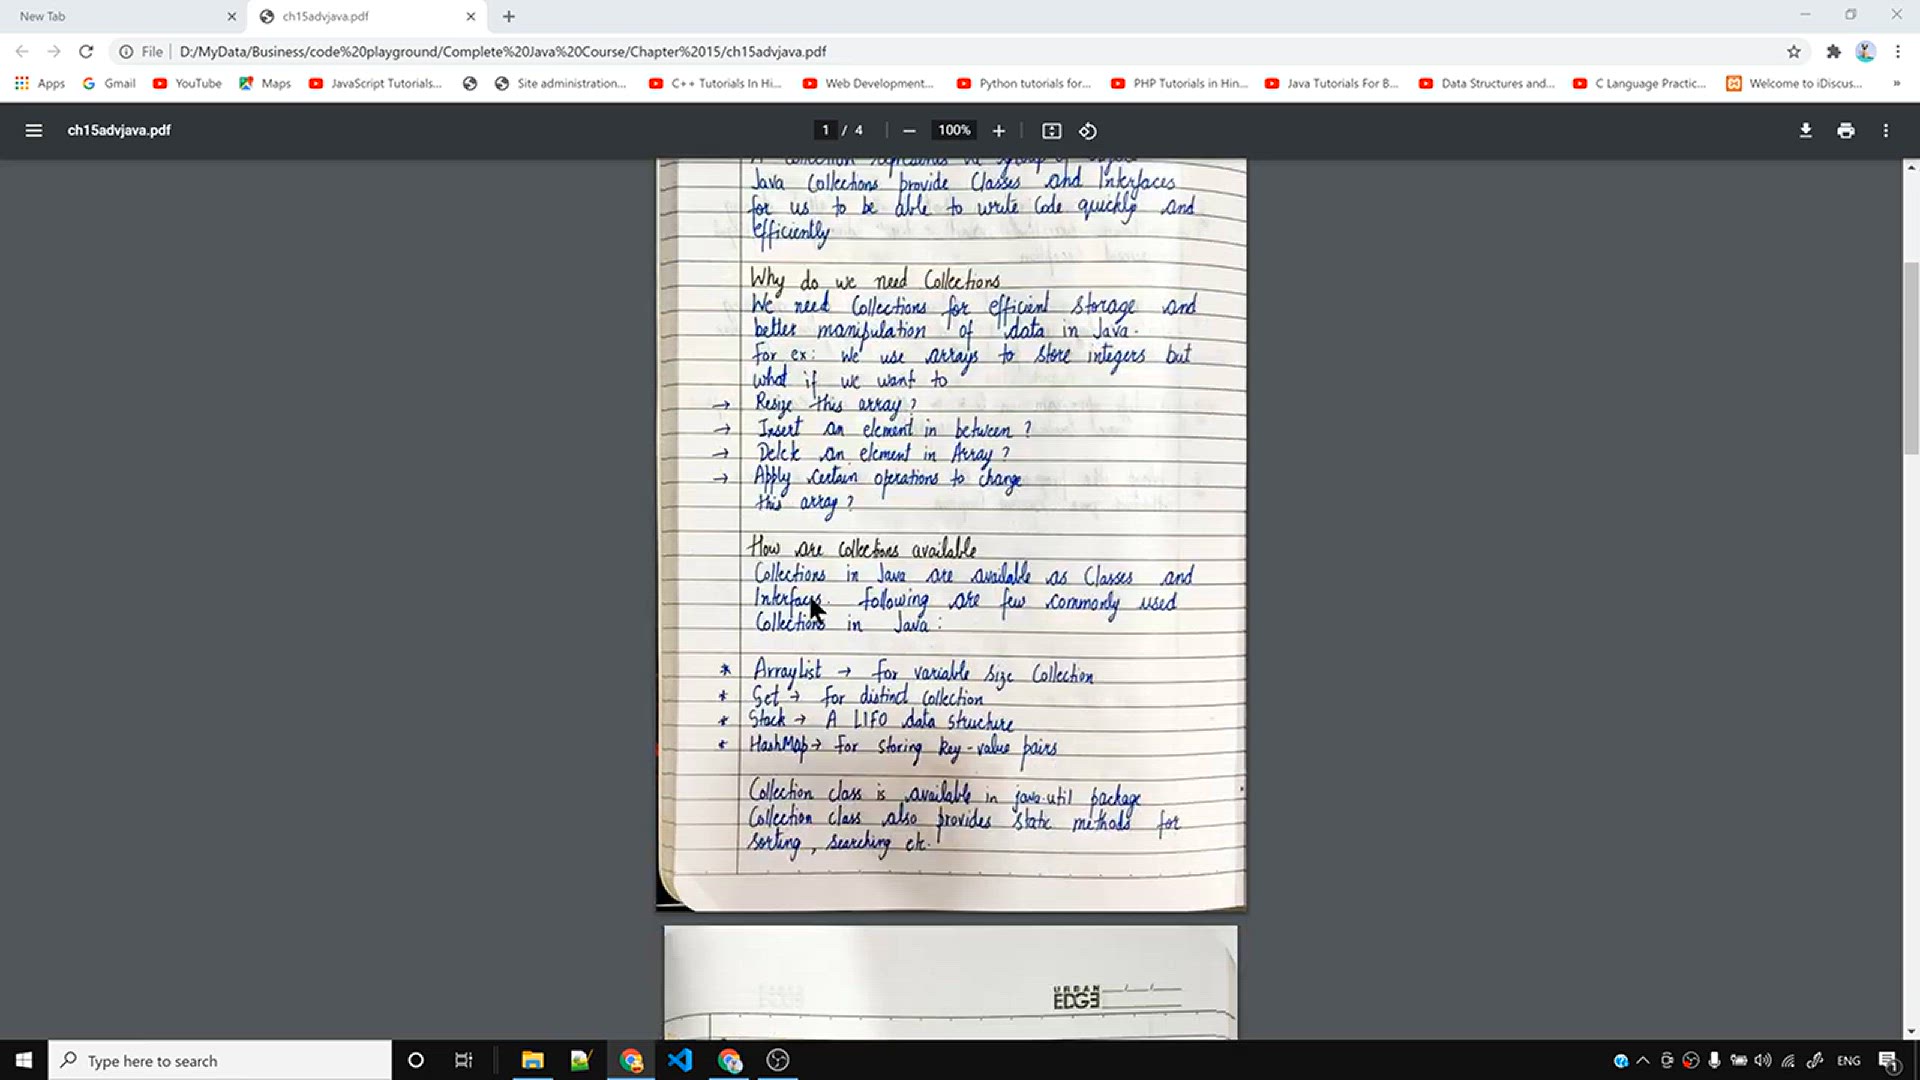 New Tab
ch15advjava.pdf
File D:/MyData/Business/code%20playground/Complete%20Java%20Course/Chapter%2015/ch15advjava.pdf
Apps Gmail YouTube Maps JavaScript Tutorials... Site administration... C++ Tutorials In Hi... Web Development... Python tutorials for... PHP Tutorials in Hin... Java Tutorials For B... Data Structures and... C Language Practic... Welcome to iDiscus... »
ch15advjava.pdf 1 / 4 100%
A collection represents a group of objects
Java Collections provide Classes and Interfaces
for us to be able to write code quickly and
efficiently
Why do we need Collections
We need Collections for efficient storage and
better manipulation of data in Java.
For ex: we use arrays to store integers but
what if we want to
→ Resize this array?
→ Insert an element in between?
→ Delete an element in Array?
→ Apply certain operations to change
this array?
How are collections available
Collections in Java are available as Classes and
Interfaces. Following are few commonly used
Collections in Java:
* ArrayList → For variable size Collection
* Set → For distinct collection
* Stack → A LIFO data structure
* HashMap → For storing key-value pairs
Collection class is available in java.util package
Collection class also provides static methods for
sorting, searching etc.
URBAN
EDGE
Type here to search
ENG
1